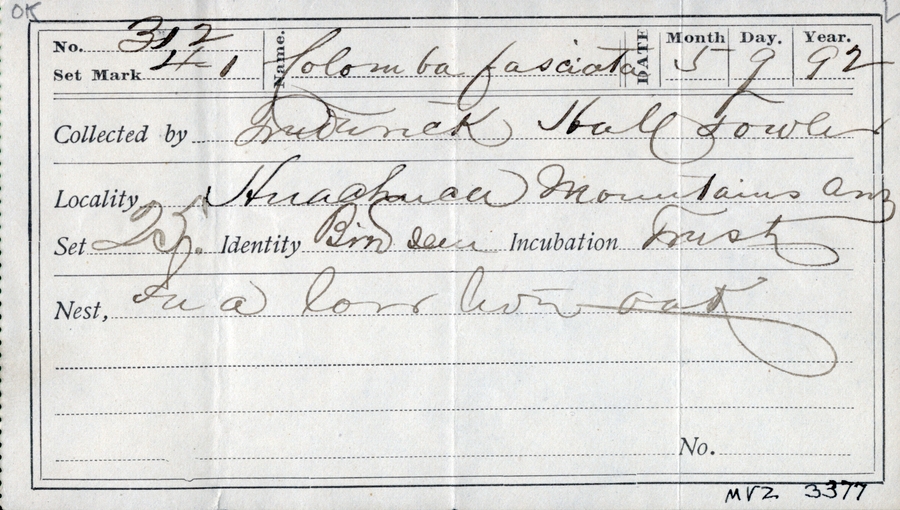 OK
No. 312 Name. Colomba fasciata DATE Month 5 Day. 9 Year. 92
Set Mark 4-1
Collected by Frederick Hall Fowler
Locality Huachuca Mountains Ariz
Set Identity Bird seen Incubation Fresh
Nest, In a low live oak
No.
MVZ 3377